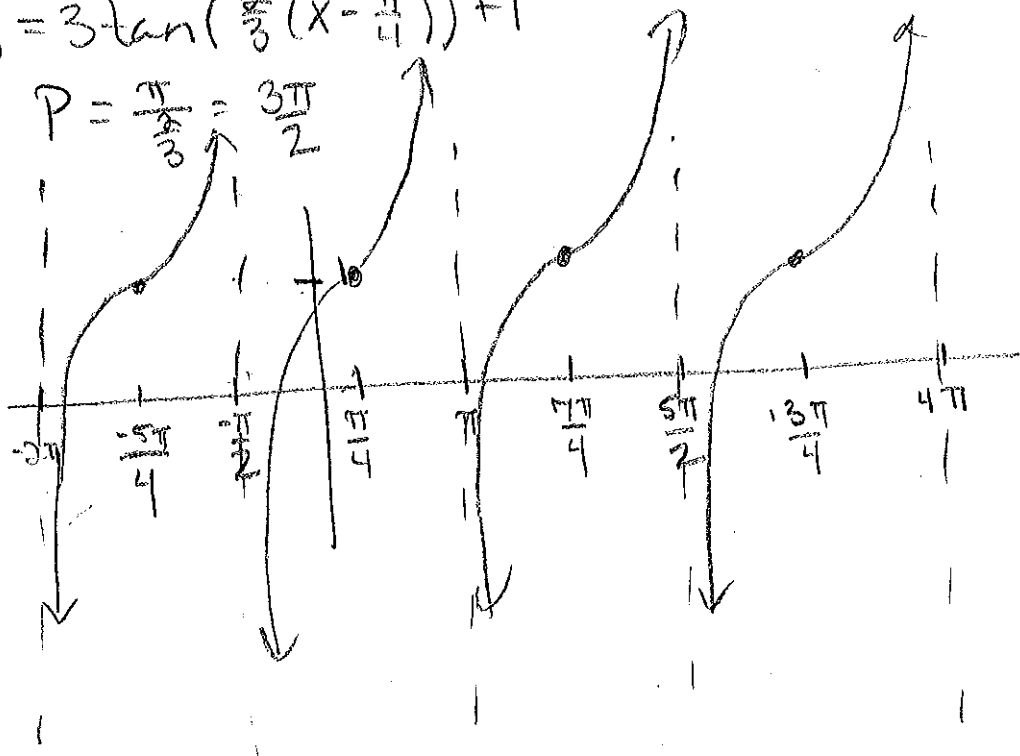 = 3 tan( 2/3 (x - π/4)) + 1
P = π/(2/3) = 3π/2
1
-2π -5π/4 -π/2 π/4 π 7π/4 5π/2 13π/4 4π